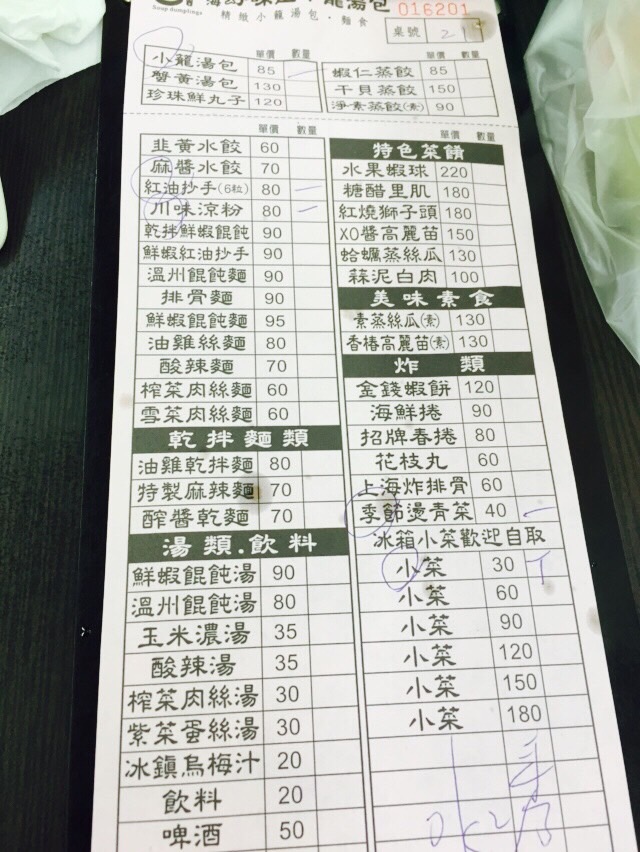 湯包
Soup dumplings
精緻小籠湯包・麵食
016201
桌號 21
單價 數量
小龍湯包 85 一
蟹黃湯包 130
珍珠鮮丸子 120
單價 數量
蝦仁蒸餃 85
干貝蒸餃 150
淨素蒸餃(素) 90
單價 數量
韭黃水餃 60
麻醬水餃 70
紅油抄手(6粒) 80 一
川味涼粉 80 一
乾拌鮮蝦餛飩 90
鮮蝦紅油抄手 90
溫州餛飩麵 90
排骨麵 90
鮮蝦餛飩麵 95
油雞絲麵 80
酸辣麵 70
榨菜肉絲麵 60
雪菜肉絲麵 60
乾拌麵類
油雞乾拌麵 80
特製麻辣麵 70
醡醬乾麵 70
湯類.飲料
鮮蝦餛飩湯 90
溫州餛飩湯 80
玉米濃湯 35
酸辣湯 35
榨菜肉絲湯 30
紫菜蛋絲湯 30
冰鎮烏梅汁 20
飲料 20
啤酒 50
單價 數量
特色菜餚
水果蝦球 220
糖醋里肌 180
紅燒獅子頭 180
XO醬高麗苗 150
蛤蠣蒸絲瓜 130
蒜泥白肉 100
美味素食
素蒸絲瓜(素) 130
香椿高麗苗(素) 130
炸類
金錢蝦餅 120
海鮮捲 90
招牌春捲 80
花枝丸 60
上海炸排骨 60
季節燙青菜 40 一
冰箱小菜歡迎自取
小菜 30 T
小菜 60
小菜 90
小菜 120
小菜 150
小菜 180